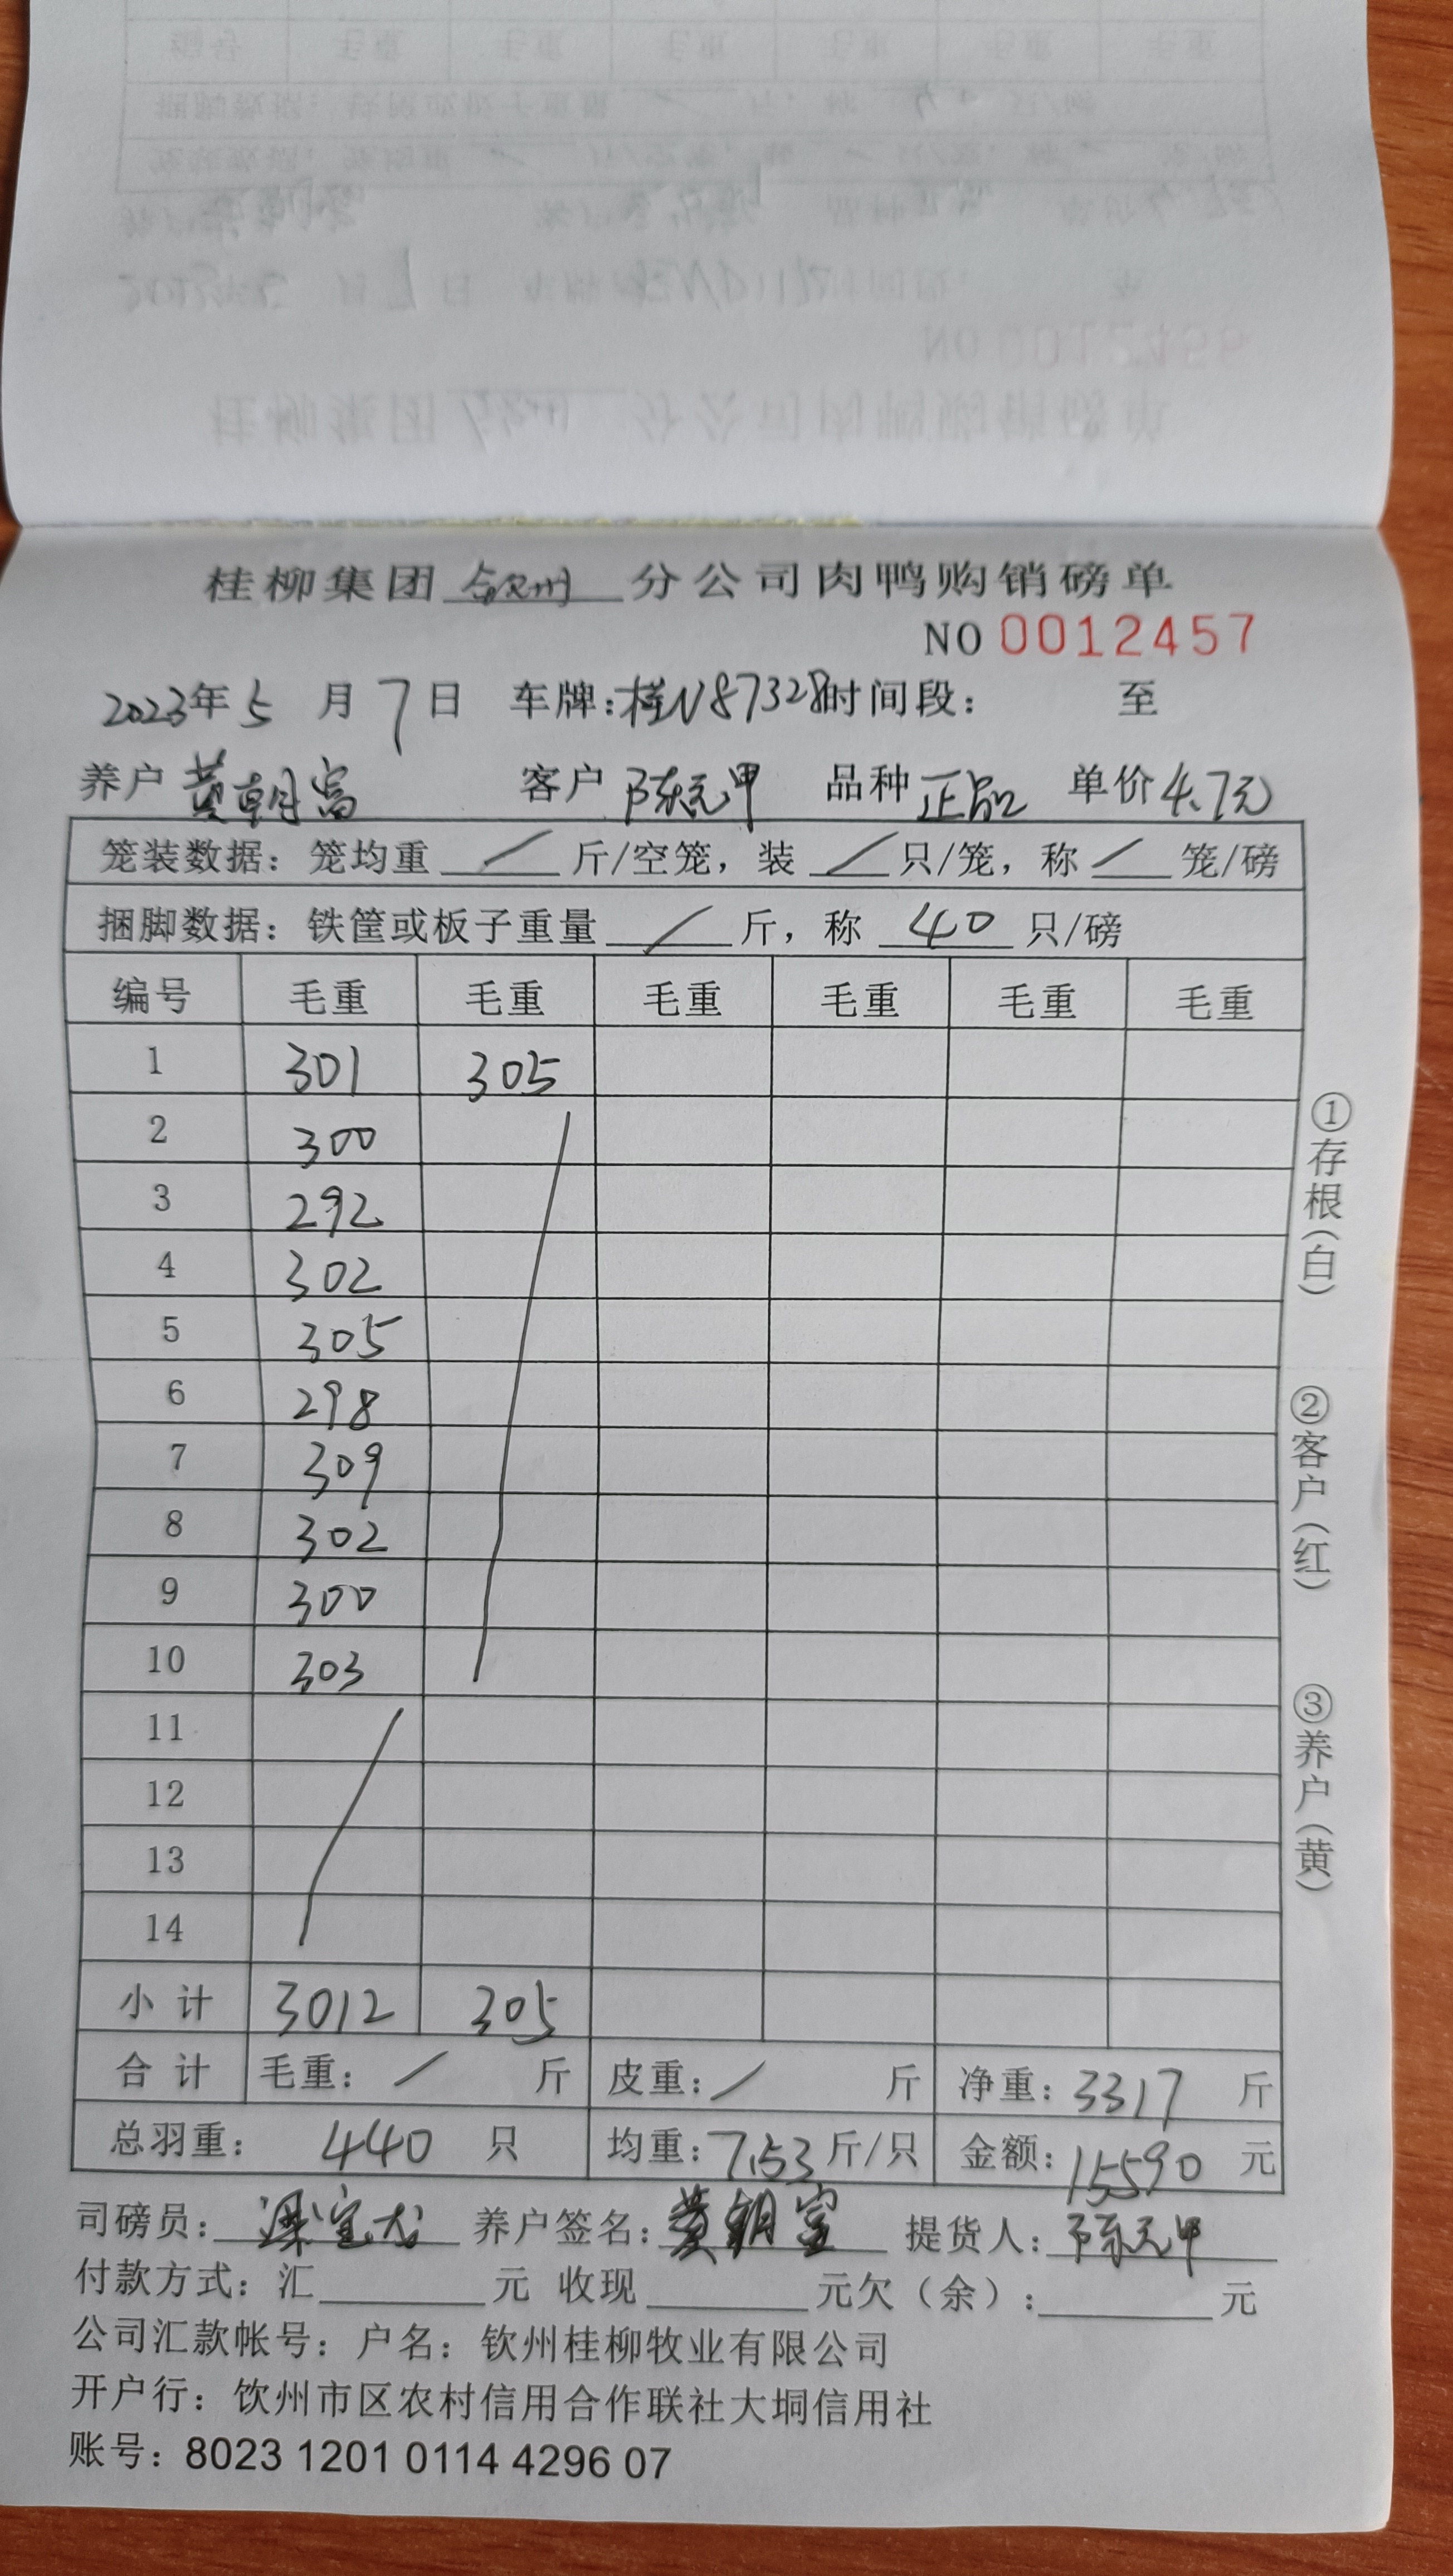 桂柳集团钦州分公司肉鸭购销磅单
NO 0012457
2023年5月7日 车牌:桂N87328时间段: 至
养户 黄朝富 客户 陈元甲 品种 正品 单价 4.7元
笼装数据: 笼均重 / 斤/空笼, 装 / 只/笼, 称 / 笼/磅
捆脚数据: 铁筐或板子重量 / 斤, 称 40 只/磅
编号 毛重 毛重 毛重 毛重 毛重 毛重
1 301 305
2 300
3 292
4 302
5 305
6 298
7 309
8 302
9 300
10 303
11
12
13
14
小计 3012 305
合计 毛重: / 斤 皮重: / 斤 净重: 3317 斤
总羽重: 440 只 均重: 7.53 斤/只 金额: 15590 元
司磅员: 养户签名: 提货人: 陈元甲
付款方式: 汇 元 收现 元欠(余): 元
公司汇款帐号: 户名: 钦州桂柳牧业有限公司
开户行: 钦州市区农村信用合作联社大垌信用社
账号: 8023 1201 0114 4296 07
①存根(白)
②客户(红)
③养户(黄)